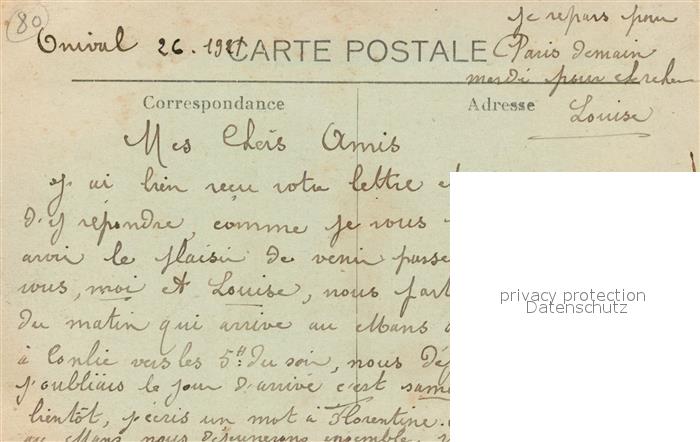 80
Onival 26.1921
CARTE POSTALE
je repars pour
Paris demain
mardi pour chercher
Louise
Correspondance
Adresse
Mes Chers Amis
J'ai bien reçu votre lettre et
d'y répondre, comme je vous
avoir le plaisir de venir passe
vous, moi et Louise, nous part
du matin qui arrive au Mans
à Conlie vers les 5h du soir, nous
j'oubliais le jour d'arrivé c'est same
bientôt, j'écris un mot à Florentine.
au Mans nous déjeunerons ensemble,
privacy protection
Datenschutz